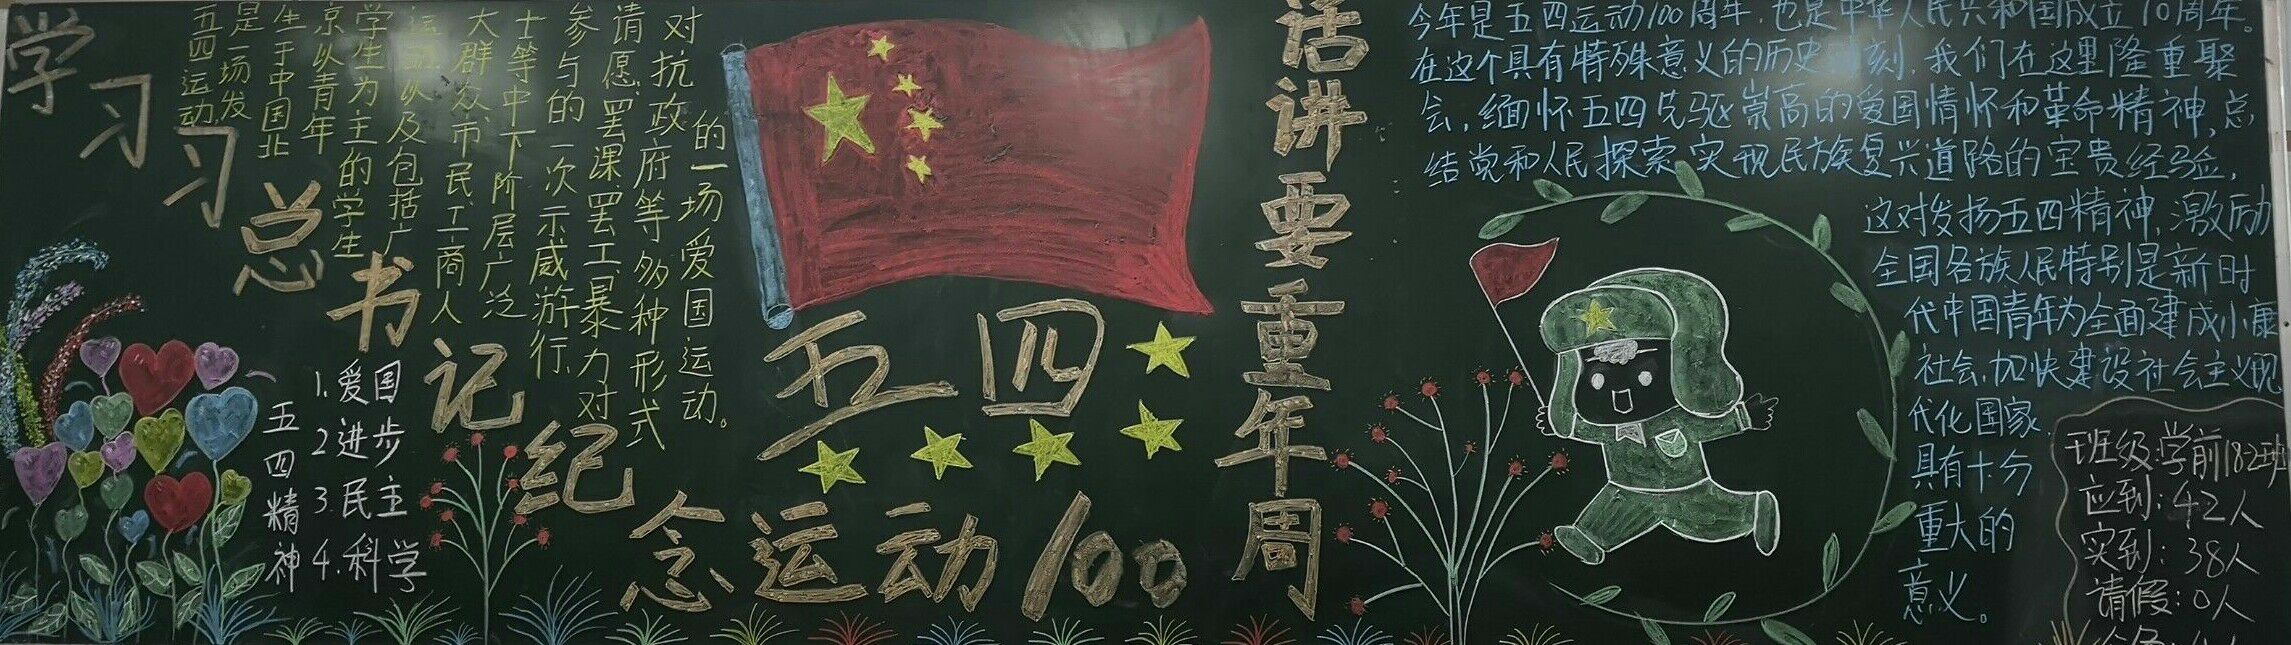 学习习总书记纪念
五四
运动100
周年重要讲话
五四运动,
是一场发
生于中国北
京以青年
学生为主的学生
运动以及包括广
大群众、市民、工商人
士等中下阶层广泛
参与的一次示威游行、
请愿、罢课、罢工、暴力对
对抗政府等多种形式
的一场爱国运动。
五四精神
1.爱国
2进步
3民主
4.科学
今年是五四运动100周年,也是中华人民共和国成立70周年。
在这个具有特殊意义的历史刻,我们在这里隆重聚
会,缅怀五四先驱崇高的爱国情怀和革命精神,总
结党和人民探索实现民族复兴道路的宝贵经验,
这对发扬五四精神,激励
全国各族人民特别是新时
代中国青年为全面建成小康
社会,加快建设社会主义现
代化国家
具有十分
重大的
意义。
班级:学前18-2班
应到:42人
实到:38人
请假:0人